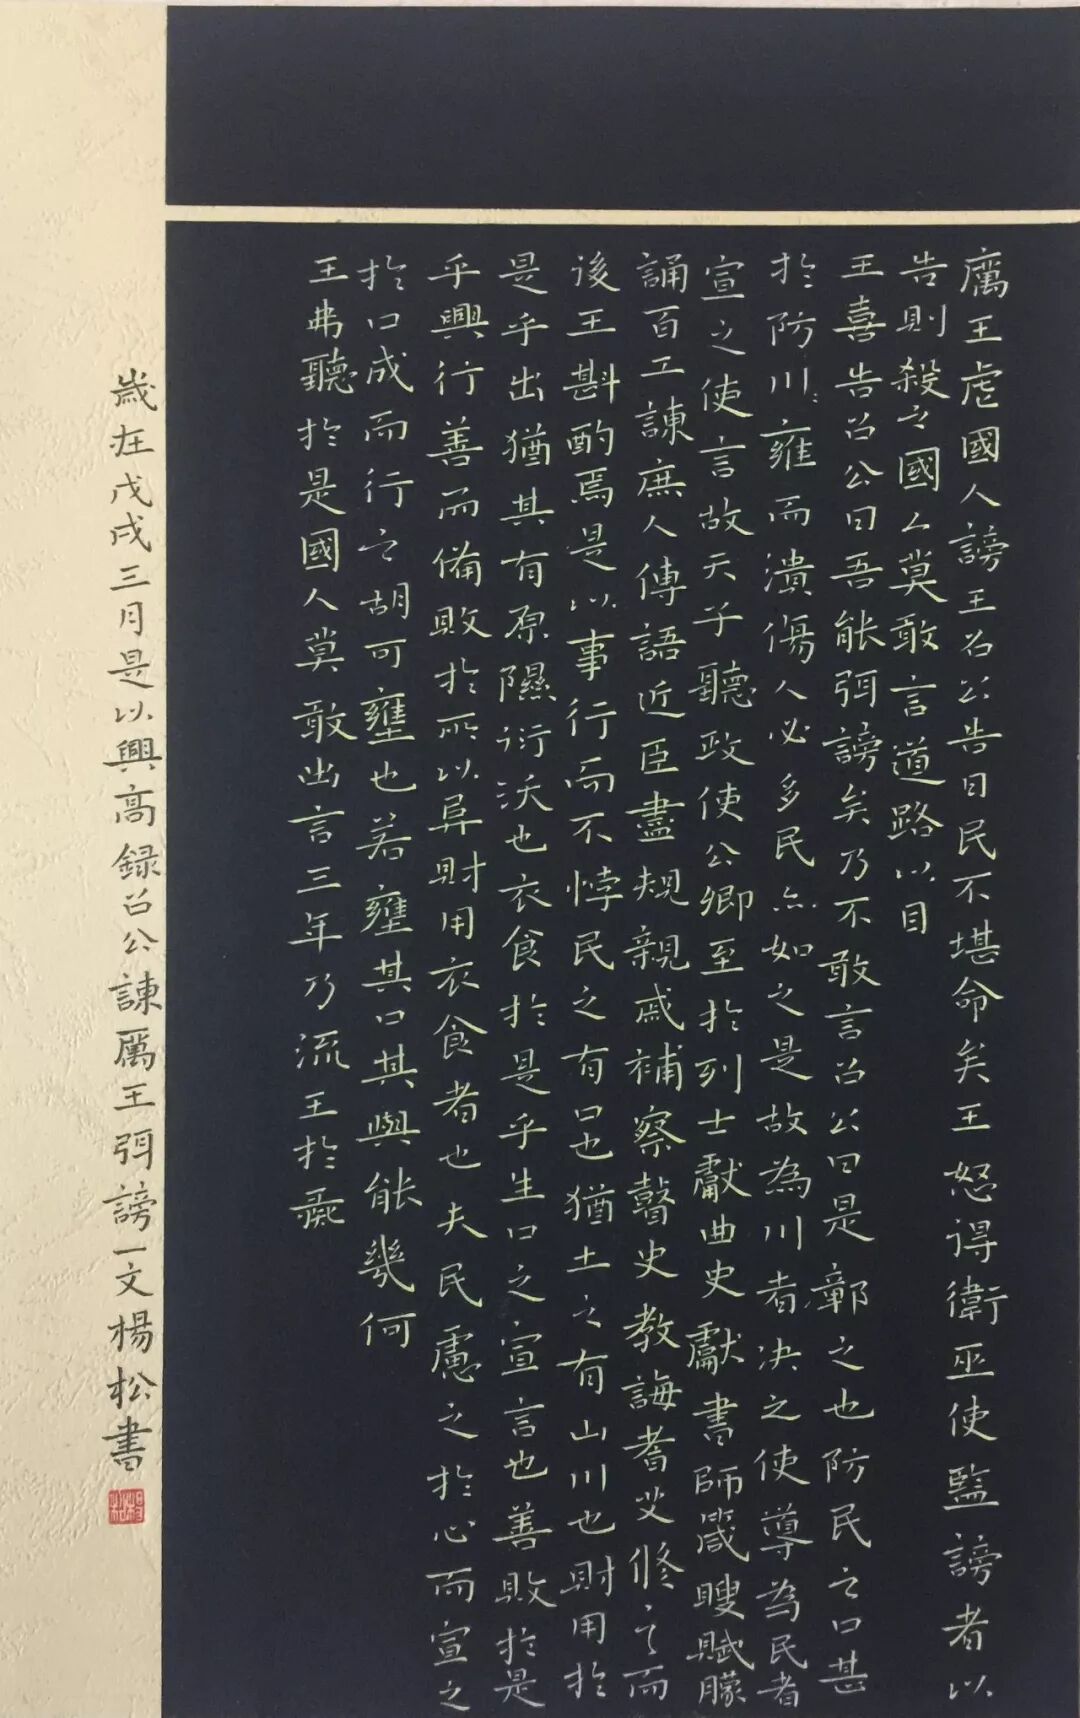 厲王虐國人謗王召公告曰民不堪命矣王怒得衛巫使監謗者以
告則殺之國人莫敢言道路以目
王喜告召公曰吾能弭謗矣乃不敢言召公曰是鄣之也防民之口甚
於防川川雍而潰傷人必多民亦如之是故為川者决之使導為民者
宣之使言故天子聽政使公卿至於列士獻曲史獻書師箴瞍賦矇
誦百工諫庶人傳語近臣盡規親戚補察瞽史教誨耆艾修之而
後王斟酌焉是以事行而不悖民之有口也猶土之有山川也財用於
是乎出猶其有原隰衍沃也衣食於是乎生口之宣言也善敗於是
乎興行善而備敗於所以阜財用衣食者也夫民慮之於心而宣之
於口成而行之胡可壅也若壅其口其與能幾何
王弗聽於是國人莫敢出言三年乃流王於彘
歲在戊戌三月是以興高録召公諫厲王弭謗一文楊松書
楊松